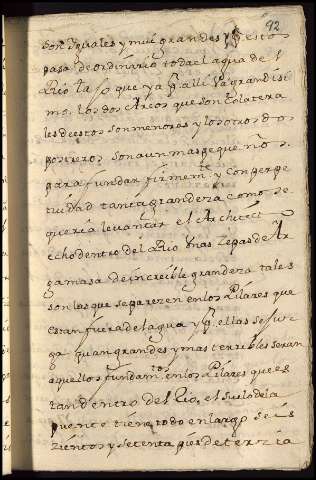 92
son yguales y mui grandes y por estos
pasa de ordinario toda el agua del
Rio la que ya por alli va grandisi
mo, los dos Arcos que son colatera
les de estos son menores y los otros dos
postreros son aun mas pequeños
para fundar firmemte y con perpe
tuidad tanta grandeza como se
queria levantar el Architecto
echo dentro del Rio unas zepas de Ar
gamasa de increible grandeza tales
son las que se parezen en los Pilares que
estan fuera del agua y por ellas se juz
ga quan grandes y mas terribles seran
aquellos fundamtos en los Pilares que es
tan dentro del Rio, el suelo de la
puente tiene todo en largo seis
zientos y setenta pies de terzia